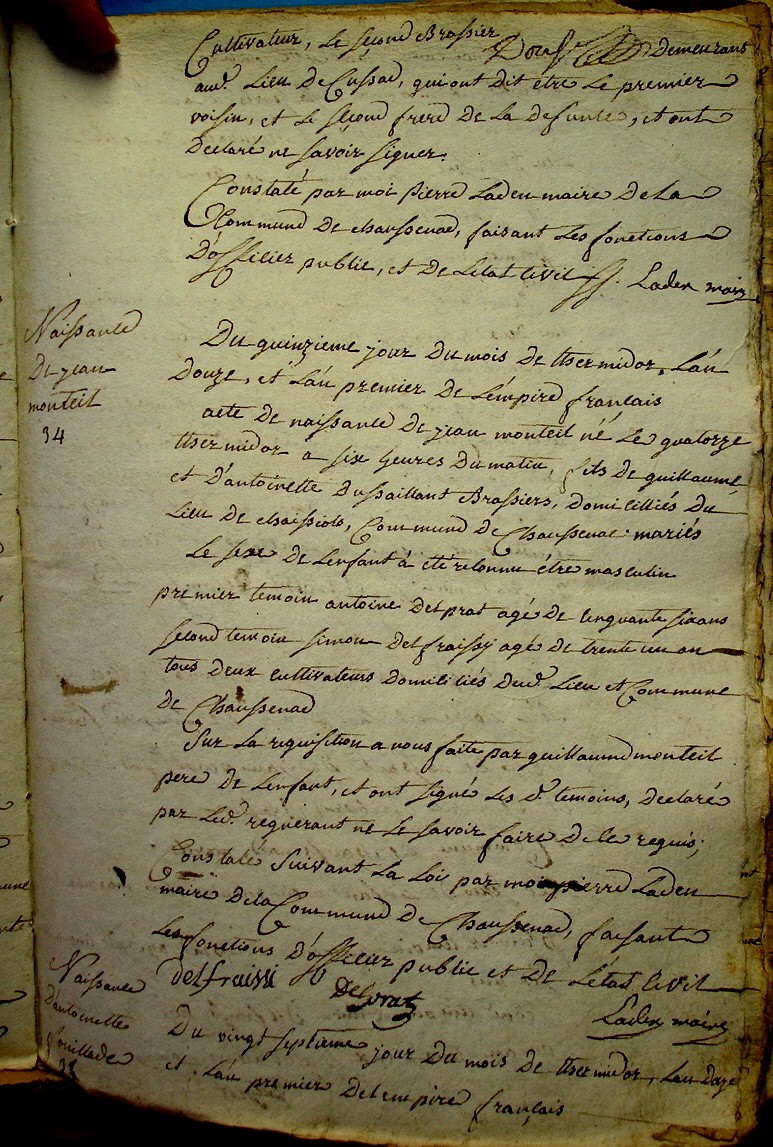 Cultivateur, Le second Brassier demeurans
aud. Lieu De Cussac, qui ont dit étre Le premier
voisin, et Le second frere De La defunte, et ont
Declaré ne savoir signer.
Constaté par moi pierre Laden maire De La
Commune De chaussenac, faisant Les fonctions
D'officier public, et De Letat Civil. Laden maire
Naissance
De jean
monteil
34
Du quinzieme jour Du mois De thermidor, L'an
Douze, et L'an premier De L'empire français
acte De naissance De jean monteil né Le quatorze
thermidor a six heures Du matin, fils De guillaume
et D'antoinette Dussaillant Brassiers, Domicilliés Du
Lieu De Commune De Chaussenac mariés
Le sexe De Lenfant á été reconnu étre masculin
premier temoin antoine Delprat agé De cinquante six ans
second temoin simon Delfraissy agé De trente un an
tous Deux cultivateurs Domiciliés Dud. Lieu et Commune
De Chaussenac
Sur La requisition a nous faite par guillaume monteil
pere De Lenfant, et ont signé Les d. temoins, Declaré
par Led. requerant ne Le savoir faire De ce requis;
Constaté Suivant La Loi par moi pierre Laden
maire De la Commune De Chaussenac, faisant
Les fonctions D'officier public et De L'état Civil
delfraissi Delprat Laden maire
Naissance
D'antoinette
fouillade
35
Du vingt septieme jour Du mois De thermidor, Lan Doze
et L'an premier De Lempire français